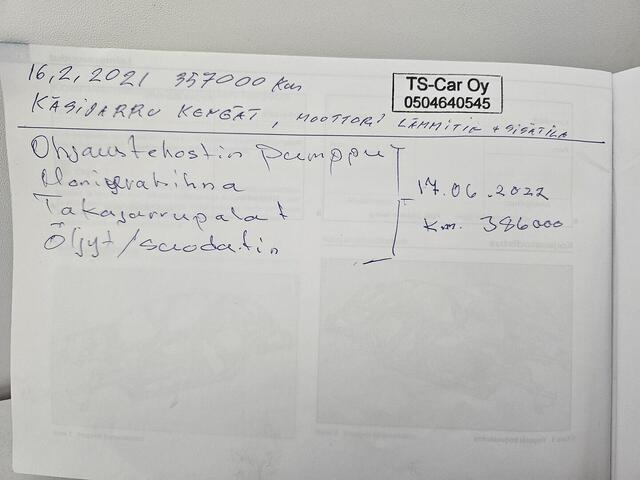 16,2,2021 357000 km
TS-Car Oy
0504640545
KÄSIJARRU KENGÄT, MOOTTORI LÄMMITIN + SISÄTILA
Ohjaustehostin pumppu
Moniurahihna
17.06.2022
Takajarrupalat
Km. 386000
Öljyt/suodatin